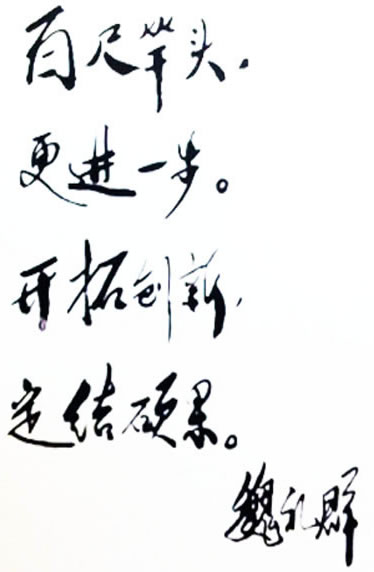 百尺竿头,
更进一步。
开拓创新,
定结硕果。
魏礼群